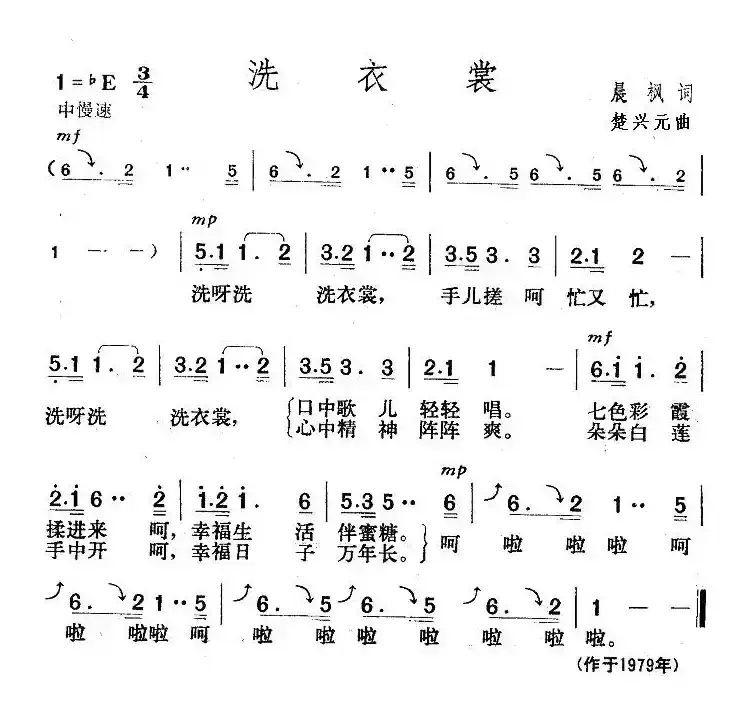 洗衣裳
1=♭E 3/4
晨枫词
中慢速
楚兴元曲
mf
(6.2 1·· 5 | 6.2 1··5 | 6.5 6.5 6.2 |
mp
1 – – ) | 5.1 1.2 | 3.2 1··2 | 3.5 3.3 | 2.1 2 – |
洗呀洗 洗衣裳, 手儿搓呵忙又忙,
mf
5.1 1.2 | 3.2 1··2 | 3.5 3.3 | 2.1 1 – | 6.1 1.2 |
洗呀洗 洗衣裳, {口中歌儿轻轻唱。 七色彩霞
心中精神阵阵爽。 朵朵白莲
mp
2.1 6·· 2 | 1.2 1. 6 | 5.3 5·· 6 | 6.2 1·· 5 |
揉进来呵,幸福生活伴蜜糖。} 呵 啦 啦啦呵
手中开呵,幸福日子万年长。
6.2 1··5 | 6.5 6.5 6.2 | 1 – – ‖
啦 啦啦呵 啦 啦啦 啦啦 啦啦。
(作于1979年)